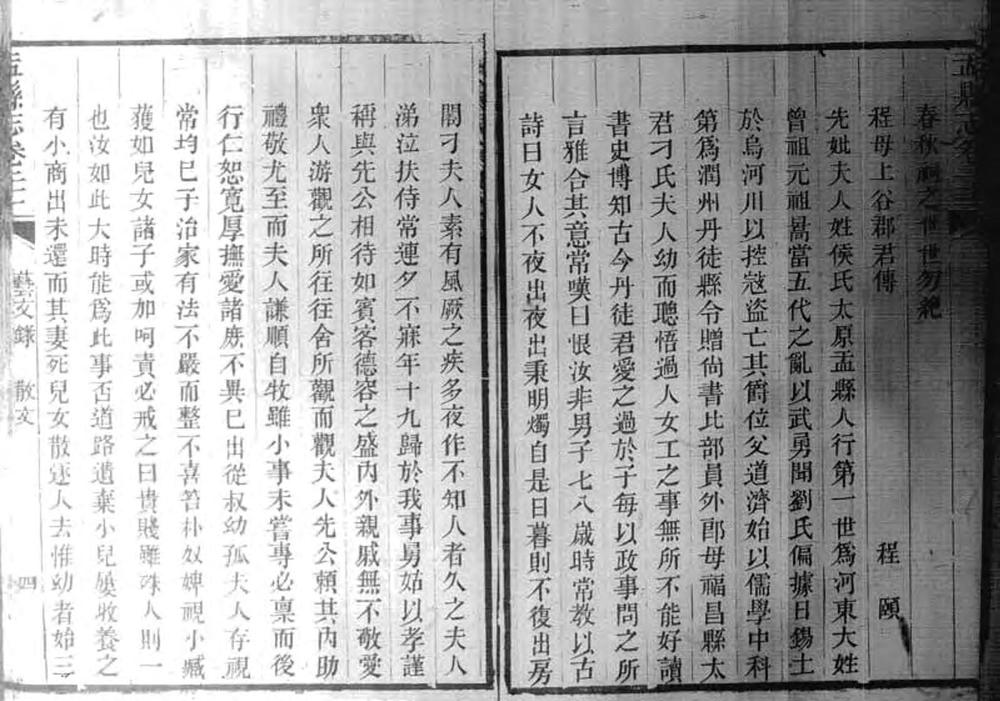 盂縣志卷
春秋祠之世世勿絶
程母上谷郡君傳　程頤
先妣夫人姓侯氏太原盂縣人行第一世爲河東大姓
曾祖元祖暠當五代之亂以武勇聞劉氏偏據日錫土
於烏河川以控寇盜亡其爵位父道濟始以儒學中科
第爲潤州丹徒縣令贈尚書比部員外郎母福昌縣太
君刁氏夫人幼而聰悟過人女工之事無所不能好讀
書史博知古今丹徒君愛之過於子每以政事問之所
言雅合其意常嘆曰恨汝非男子七八歲時常教以古
詩曰女人不夜出夜出秉明燭自是日暮則不復出房
閤刁夫人素有風厥之疾多夜作不知人者久之夫人
涕泣扶侍常連夕不寐年十九歸於我事舅姑以孝謹
稱與先公相待如賓客德容之盛内外親戚無不敬愛
衆人游觀之所往往舍所觀而觀夫人先公賴其内助
禮敬尤至而夫人謙順自牧雖小事未嘗專必禀而後
行仁恕寬厚撫愛諸庶不異己出從叔幼孤夫人存視
常均己子治家有法不嚴而整不喜笞朴奴婢視小臧
獲如兒女諸子或加呵責必戒之曰貴賤雖殊人則一
也汝如此大時能爲此事否道路遺棄小兒屢收養之
有小商出未還而其妻死兒女散逐人去惟幼者始三
盂縣志卷之　藝文錄　散文　四